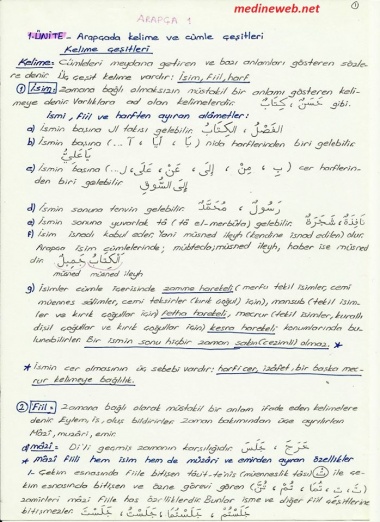 medineweb.net
1
ARAPÇA 1
1.ÜNİTE - Arapçada kelime ve cümle çeşitleri
Kelime çeşitleri
Kelime: Cümleleri meydana getiren ve bazı anlamları gösteren sözle-
re denir. Üç çeşit kelime vardır: İsim, Fiil, harf
1 İsim: zamana bağlı olmaksızın müstakil bir anlamı gösteren keli-
meye denir. Varlıklara ad olan kelimelerdir. حَسَنٌ ، كِتَابٌ gibi.
İsmi, fiil ve harften ayıran alâmetler:
a) İsmin başına ال takısı gelebilir. الْفَضْلُ ، الْكِتَابُ
b) İsmin başına (يَا ، أَيَا ، آ ...) nida harflerinden biri gelebilir.
يَا عَلِيُّ
c) İsmin başına (بِ ، مِنْ ، إِلَى ، عَنْ ، عَلَى ، لِ...) cer harflerin-
den biri gelebilir. إِلَى السُّوقِ
d) İsmin sonuna tenvin gelebilir. رَسُولٌ ، مُحَمَّدٌ
e) İsmin sonuna yuvarlak tâ (tâ el-merbûta) gelebilir. نَافِذَةٌ ، شَجَرَةٌ
f) İsim isnadı kabul eder. Yani müsned ileyh (kendine isnad edilen) olur.
Arapça isim cümlelerinde; mübteda; müsned ileyh, haber ise müsned
dir. الْكِتَابُ جَمِيلٌ
müsned müsned ileyh
g) İsimler cümle içerisinde zamme harekeli (merfu tekil isimler, cemi
müennes sâlimler, cemi teksirler (kırık çoğul) için), mansub (tekil isim-
ler ve kırık çoğullar için) fetha harekeli, mecrur (tekil isimler, kurallı
dişil çoğullar ve kırık çoğullar için) kesra harekeli konumlarında bu-
lunabilirler. Bir ismin sonu hiçbir zaman sakin (cezimli) olmaz. *
* İsmin cer olmasının üç sebebi vardır: harfi cer, izâfet, bir başka mec-
rur kelimeye bağlılık.
2 Fiil: Zamana bağlı olarak müstakil bir anlam ifade eden kelimelere
denir. Eylem, iş, oluş bildirirler. Zaman bakımından üçe ayrılırlar
Mâzi, muzâri, emir.
a) mâzi: Di'li geçmiş zamanın karşılığıdır. خَرَجَ ، جَلَسَ
* mâzi fiili hem isim hem de muzâri ve emirden ayıran özellikler
1- Çekim esnasında fiile bitişen tâut-te'nis (müenneslik tâsı) (تْ) ile çe-
kim esnasında bitişen ve özne görevi gören (تَ ، تِ ، تُمَا ، تُمْ ، تُنَّ)
zamirleri mâzi fiile has özelliklerdir. Bunlar isme ve diğer fiil çeşitlerine
bitişmezler. جَلَسَتْ ، جَلَسْتَ ، جَلَسْتُمَا ، جَلَسْتُمْ